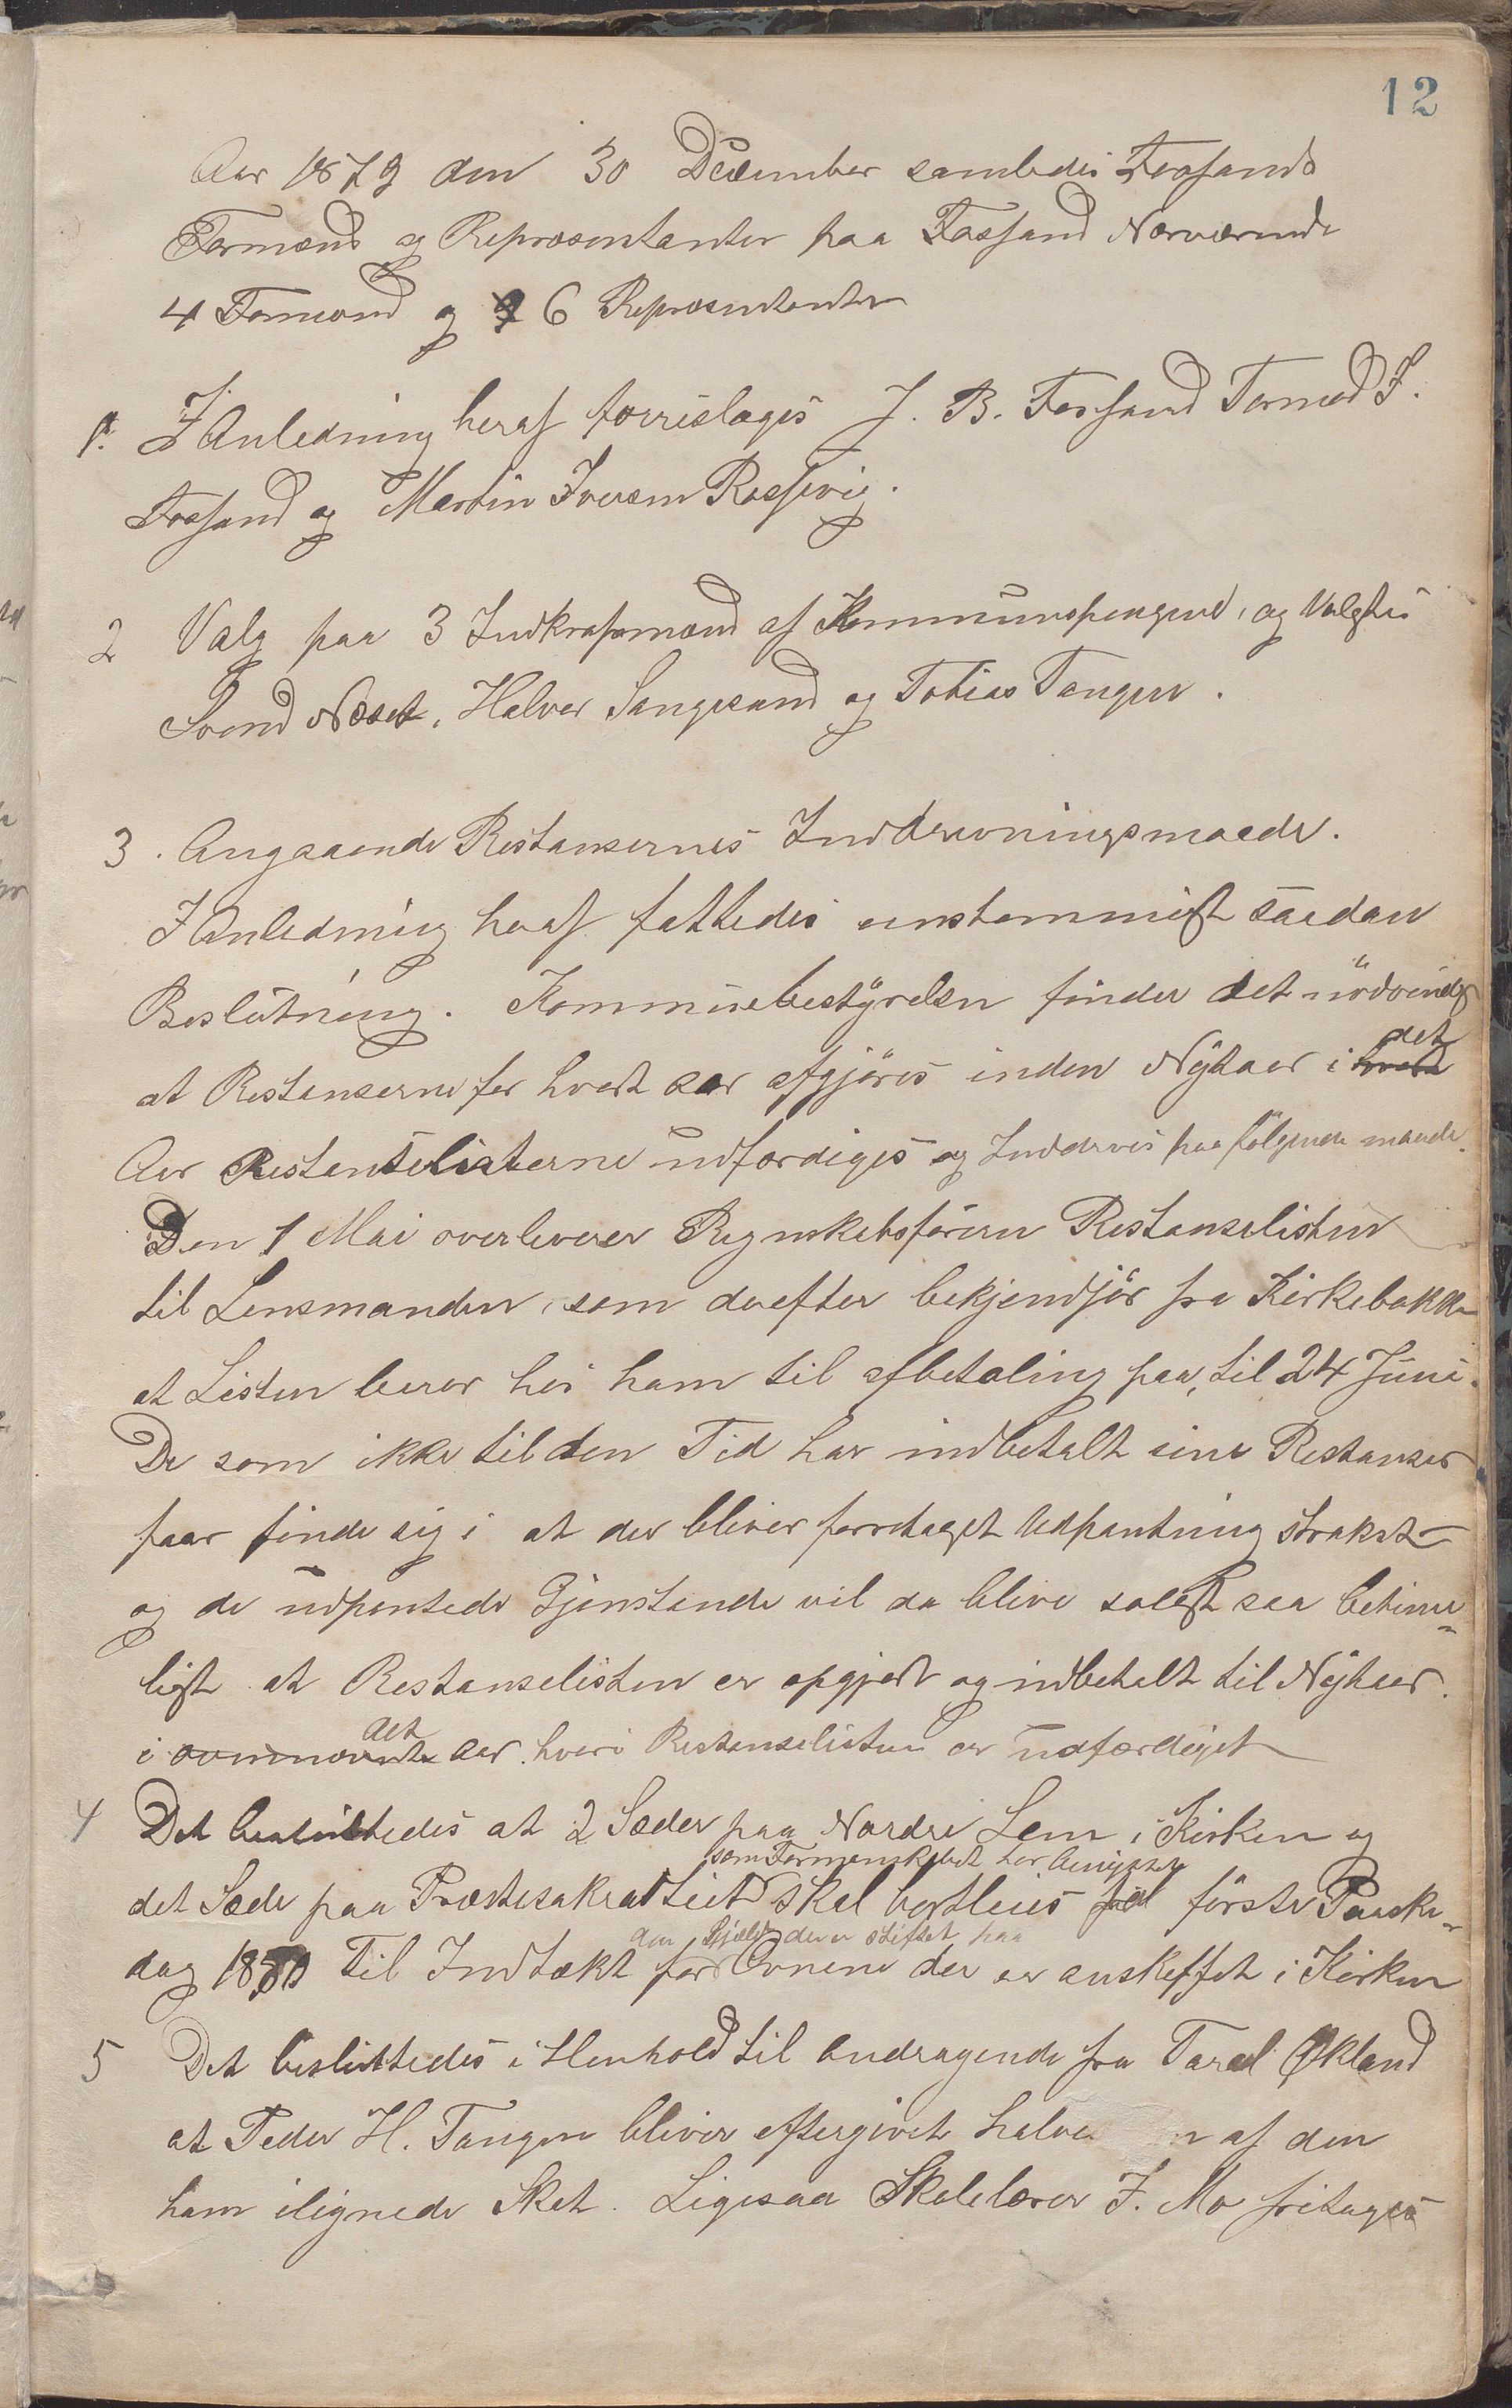 12
Aar 1879 den 30 December samledes Forsands
Formænd og Repræsentanter paa Fossand Nærværende
4 Formænd og 6 Repræsentanter
1. I Anledning heraf foreslages J. B. Forsand Tormod T.
Fossand og Martin Iversen Rossevig.
2 Valg paa 3 Indkræfsmænd af Kommunepengene, og Valgtes
Svend Næset, Halvor Sangesand og Tobias Tangen.
3. Angaaende Restansernes Inddrivningsmaade.
I Anledning heraf fattedes enstemmigt saadan
Beslutning. Kommunebestyrelsen finder det nödvendigt
at Restanserne for hvert aar afgjöres inden Nÿtaar i det
Aar Restanselisterne udfærdiges og Inddrives paa følgende maade.
Den 1 Mai overleverer Regnskabsföreren Restanselisten
til Lensmanden, som derefter bekjendtgjör fra Kirkebakken
at Listen beror hos ham til afbetaling paa, til 24 Juni.
De som ikke til den Tid har indbetalt sine Restanser
faar finde sig i at der bliver foretaget Udpantning strakst
og de udpantede Gjenstande vil da blive solgt saa betime-
ligt at Restanselisten er opgjort og indbetalt til Nÿtaar.
i det Aar hvori Restanselisten er udfærdiget
4 Det besluttedes at 2 Sæder paa Nordre Lem i Kirken og
som Formanskabet har benyttet
det Sæde paa Præstesakrastiet skal bortleies første Paaske-
den Gjæld der er stiftet paa
dag 1880 Til Indtækt for Ovnene der er anskaffet i Kirken
5 Det besluttedes i Henhold til Andragende fra Tarel Økland
at Peder H. Tangen bliver eftergivet halve af den
ham ilignede Skat. Ligesaa Skolelærer J. Mo fritages